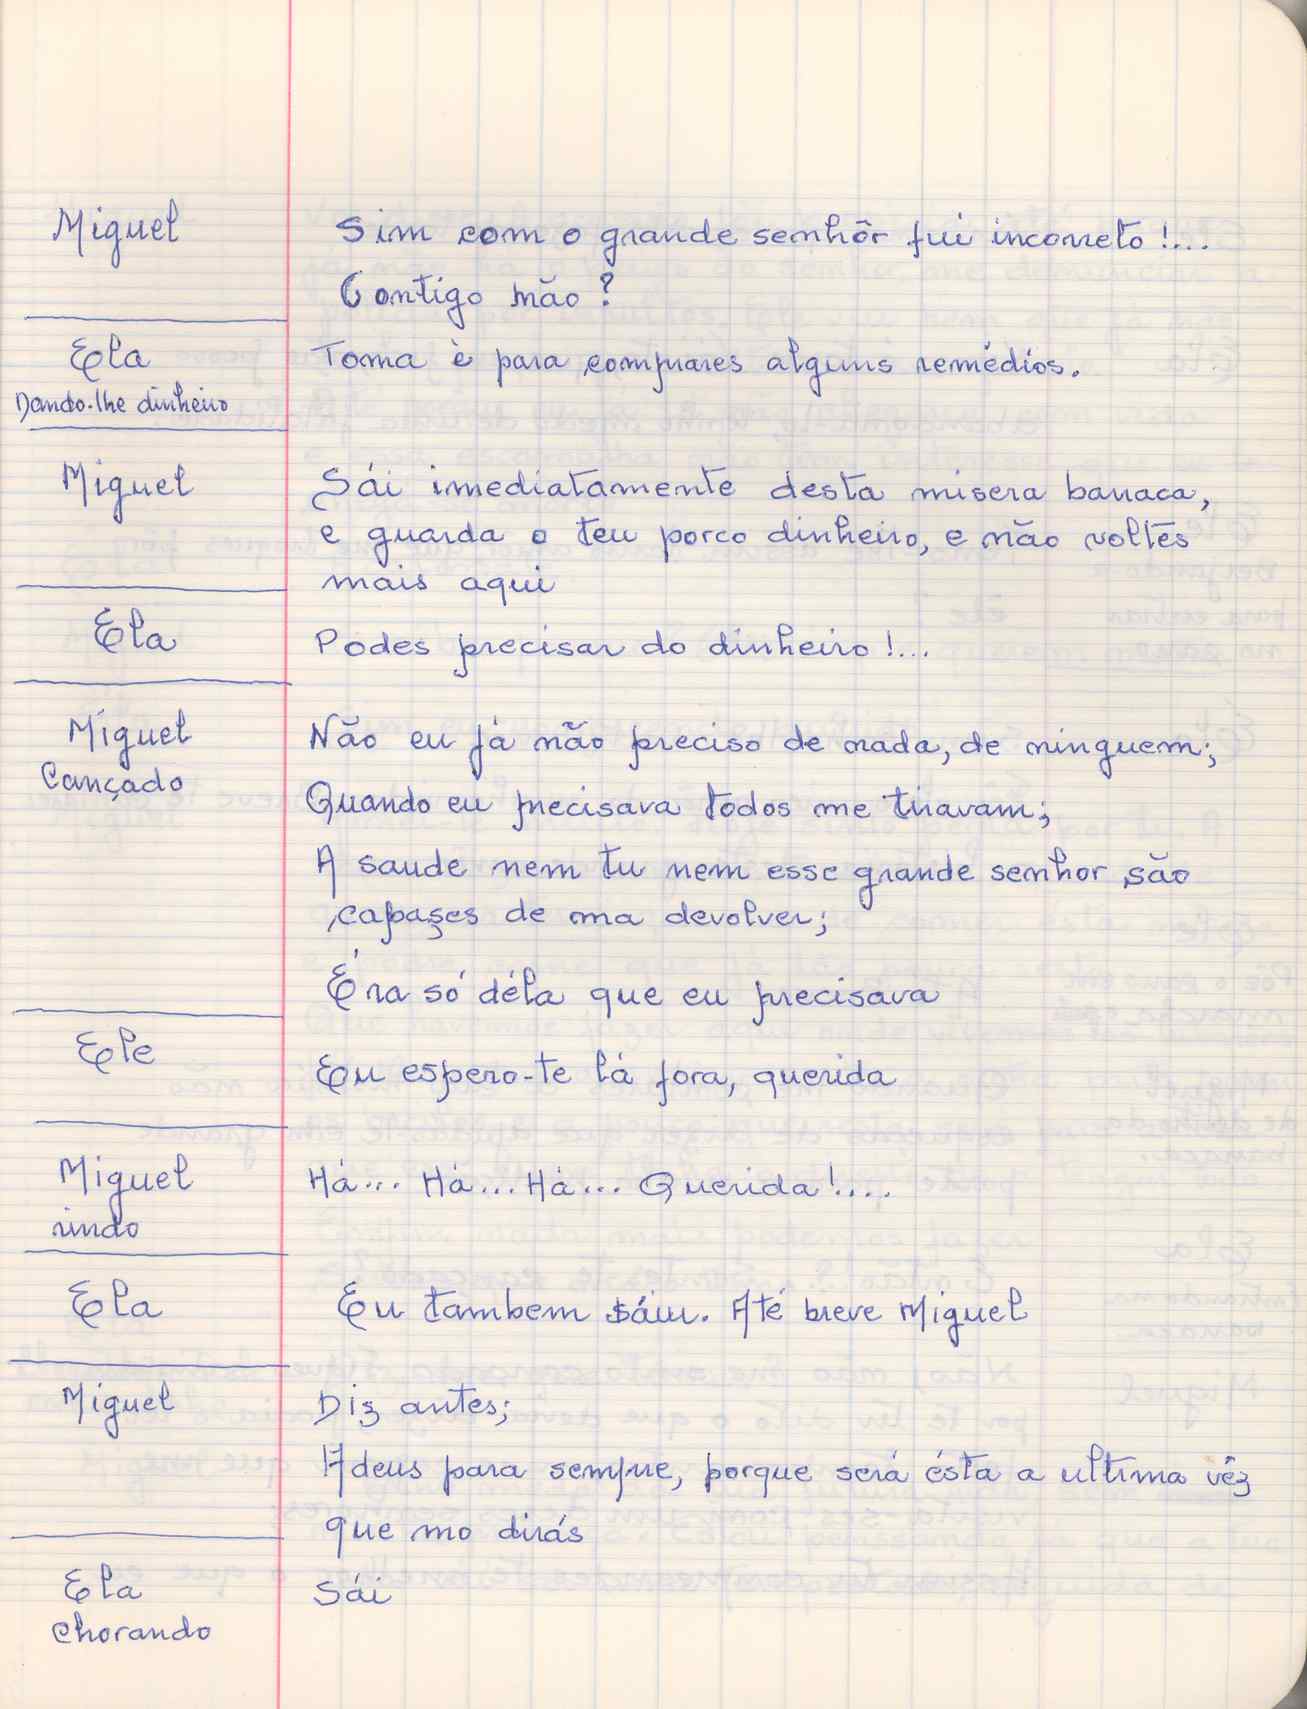 Miguel
Sim com o grande semhôr fui incorreto !...
Contigo mão ?
Ela
Toma è para comprares alguns remédios.
Dando-lhe dinheiro
Miguel
Sái imediatamente desta misera barraca,
e guarda o teu porco dinheiro, e não voltes
mais aqui
Ela
Podes precisar do dinheiro !...
Miguel
Não eu já não preciso de nada, de ninguem;
Cançado
Quando eu precisava todos me tiravam;
A saude nem tu nem esse grande senhor são
capases de ma devolver;
Éra só déla que eu precisava
Ele
Eu espero-te lá fora, querida
Miguel
Há... Há... Há... Querida !....
rindo
Ela
Eu tambem sáiu. Até breve Miguel
Miguel
Diz antes;
Adeus para sempre, porque será ésta a ultima vêz
que mo dirás
Ela
Sái
chorando